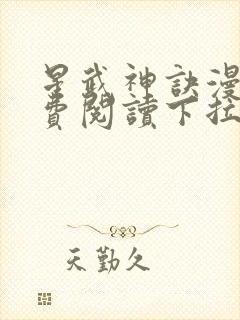 星武神訣漫
費閱讀下拉
天勤久